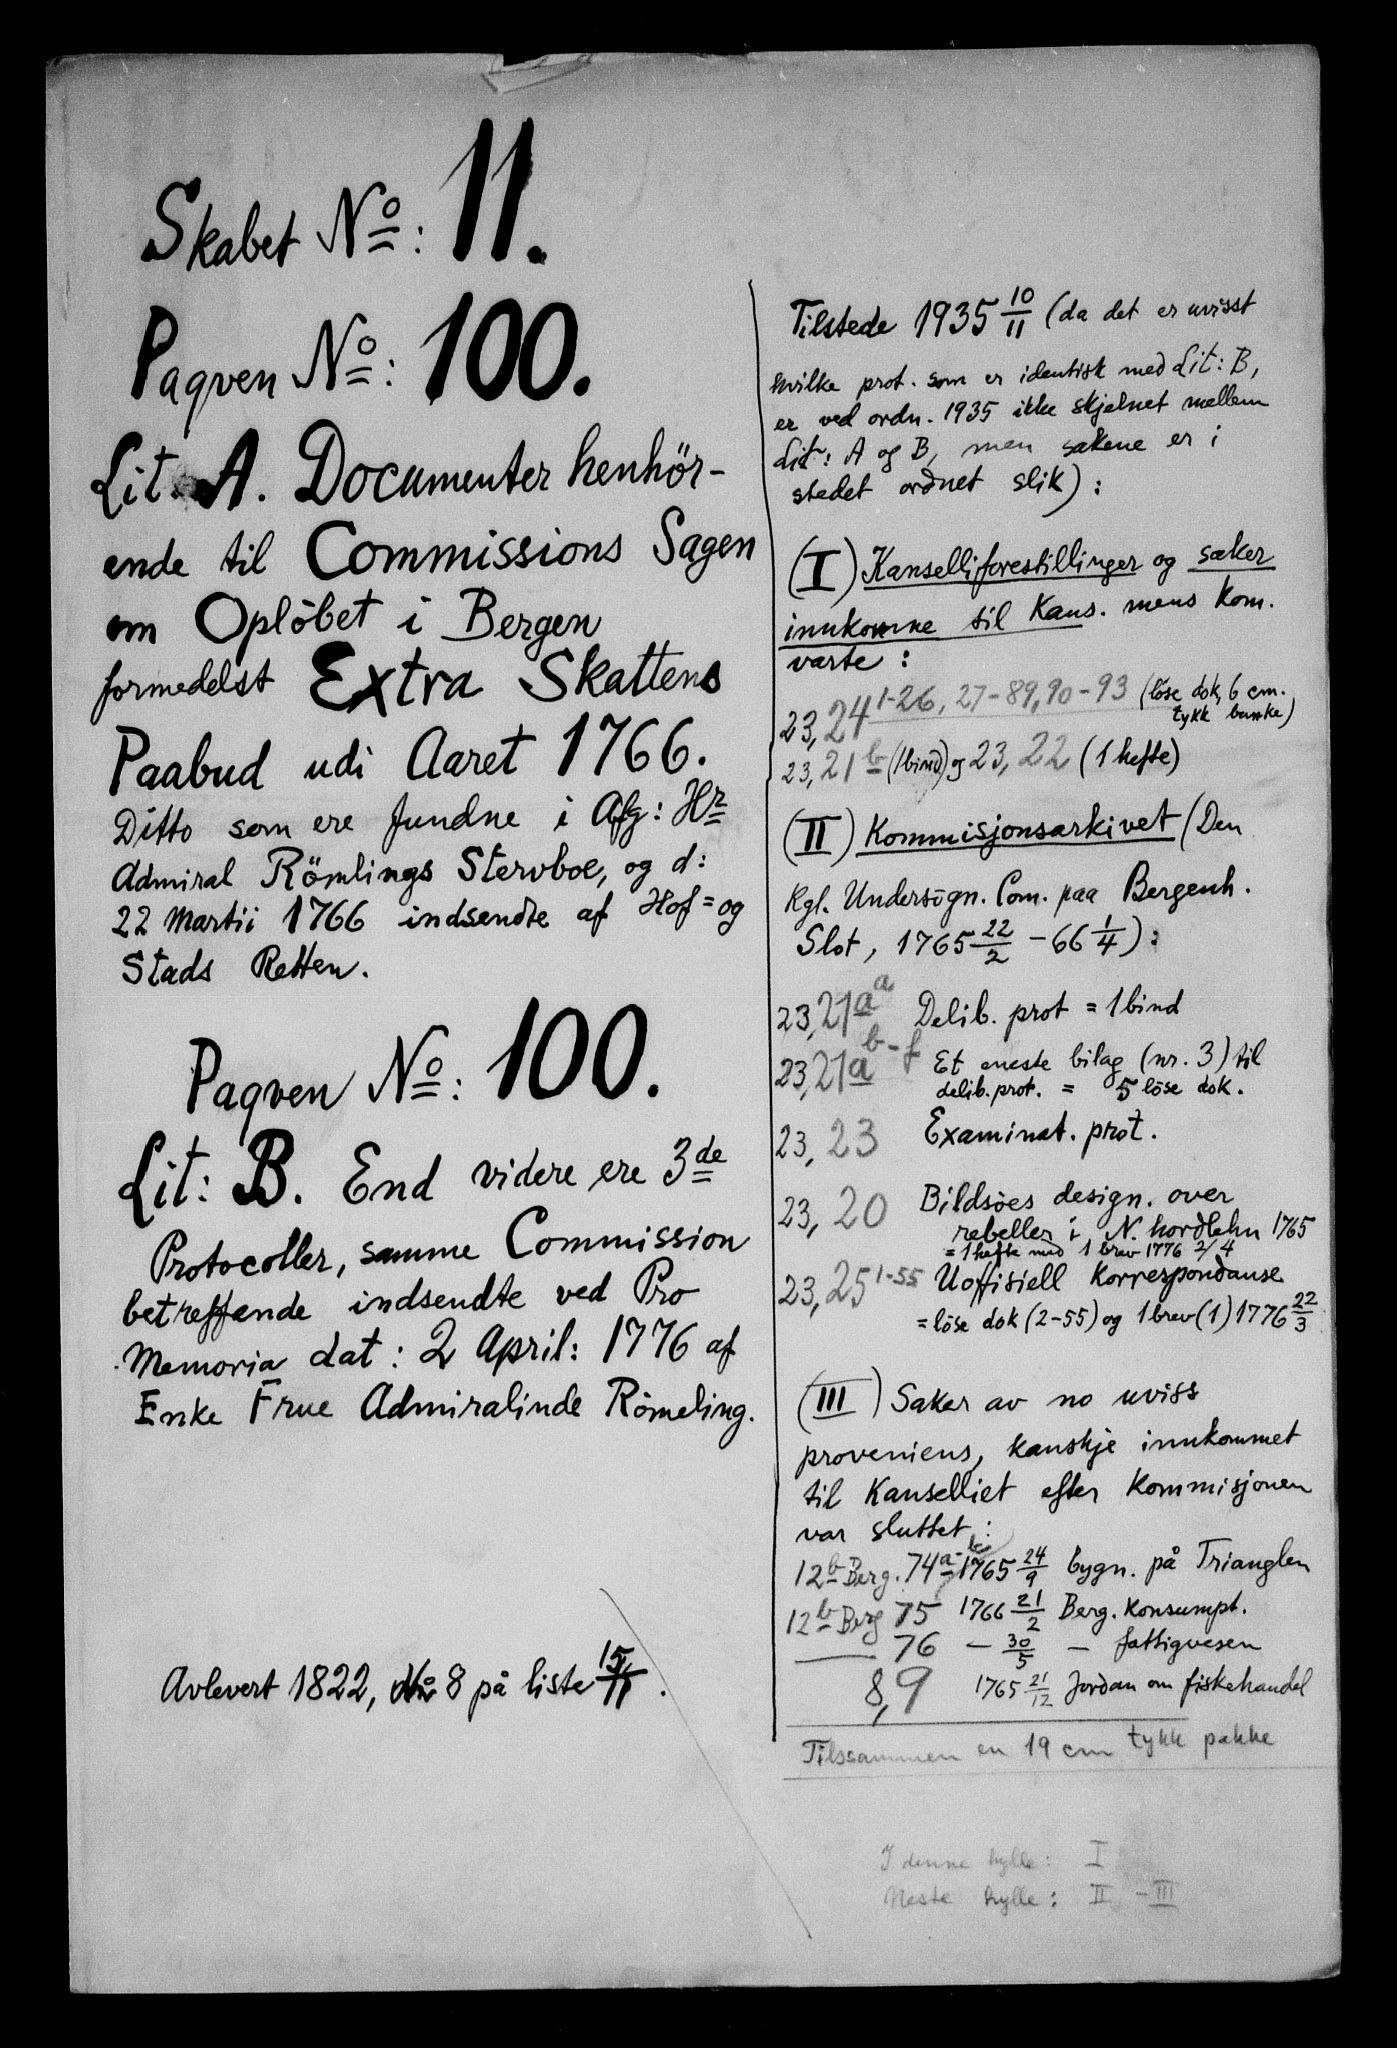 Skabet No: 11.
Paqven No: 100.
Lit. A. Documenter henhör-
ende til Commissions Sagen
om Oplöbet i Bergen
formedelst Extra Skattens
Paabud udi Aaret 1766.
Ditto som ere fundne i Afg: Hr
Admiral Römlings Stervboe, og d:
22 Martii 1766 indsendte af Hof= og
Stads Retten.
Paqven No: 100.
Lit: B. End videre ere 3de
Protocoller, samme Commission
betreffende indsendte ved Pro
Memoria dat: 2 April: 1776 af
Enke Frue Admiralinde Römeling.
Avlevert 1822, 8 på liste 15/11.
Tilstede 1935 10/11 (da det er uvisst
hvilke prot. som er identisk med Lit: B,
er ved ordn. 1935 ikke skjelnet mellem
Lit: A og B, men sakene er i
stedet ordnet slik):
(I) Kanselliforestillinger og saker
innkomne til Kans. mens kom.
varte:
23,24 1-26, 27-89, 90-93 (löse dok, 6 cm.
tykk bunke)
23,21 b (1 bind) og 23,22 (1 hefte)
(II) Kommisjonsarkivet (Den
Kgl. Undersögn. Com. paa Bergenh.
Slot, 1765 22/2 - 66 1/4):
23,21a a Delib. prot = 1 bind
23,21a b-f Et eneste bilag (nr. 3) til
delib. prot. = 5 löse dok.
23,23 Examinat. prot.
23,20 Bildsöes design. over
rebeller i N. hordlehn 1765
= 1 hefte med 1 brev 1776 2/4
23,25 1-55 Uoffisiell korrespondanse
= löse dok (2-55) og 1 brev (1) 1776 22/3
(III) Saker av no uviss
proveniens, kanskje innkommet
til Kanselliet efter kommisjonen
var sluttet:
12b Berg. 74a- 1765 24/9 bygn. på Trianglen
12b Berg 75 1766 21/2 Berg. konsumpt.
—— 76 — 30/5 — fattigvesen
8,9 1765 21/12 Jordan om fiskehandel
Tilssammen en 19 cm tykk pakke
I denne hylle: I
Neste hylle: II - III